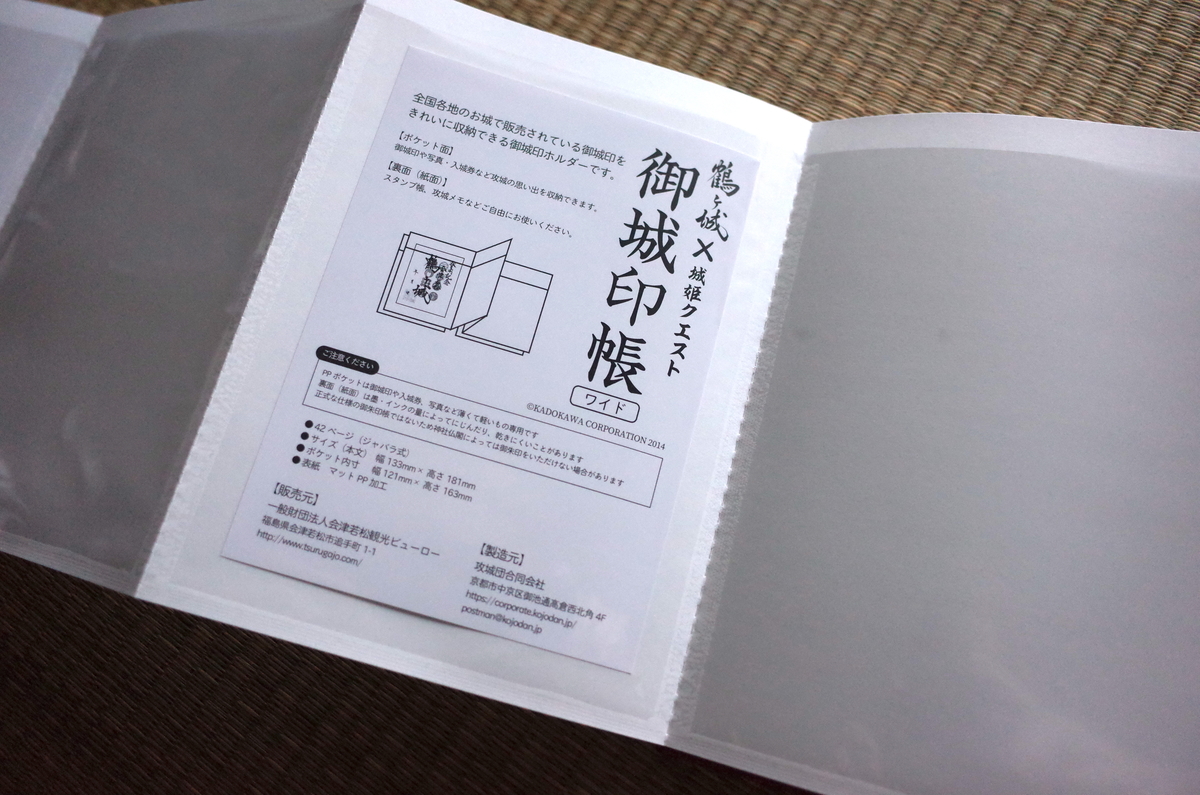 鶴ヶ城×城姫クエスト
御城印帳
ワイド
©KADOKAWA CORPORATION 2014
全国各地のお城で販売されている御城印を
きれいに収納できる御城印ホルダーです。
【ポケット面】
御城印や写真・入城券など攻城の思い出を収納できます。
【裏面（紙面）】
スタンプ帳、攻城メモなどご自由にお使いください。
ご注意ください
PPポケットは御城印や入城券、写真など薄くて軽いもの専用です
裏面（紙面）は墨・インクの量によってにじんだり、乾きにくいことがあります
正式な仕様の御朱印帳ではないため神社仏閣によっては御朱印をいただけない場合があります
●42ページ（ジャバラ式）
●サイズ（本文） 幅 133mm× 高さ 181mm
●ポケット内寸 幅 121mm× 高さ 163mm
●表紙 マット PP 加工
【販売元】
一般財団法人会津若松観光ビューロー
福島県会津若松市追手町 1-1
http://www.tsurugajo.com/
【製造元】
攻城団合同会社
京都市中京区御池通高倉西北角 4F
https://corporate.kojodan.jp/
postman@kojodan.jp